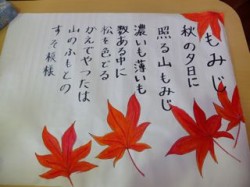 もみじ
秋の夕日に
照る山もみじ
濃いも薄いも
数ある中に
松を色どる
かえでやつたは
山のふもとの
すそ模様